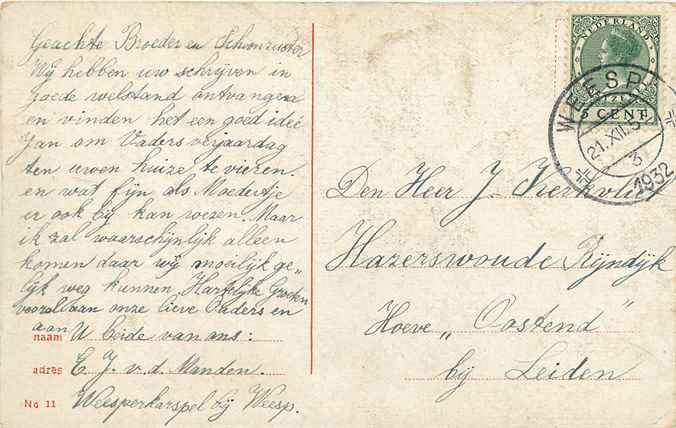 Geachte Broeder en Schoonzuster
Wij hebben uw schrijven in
goede welstand ontvangen
en vinden het een goed idée
Jan om Vaders verjaardag
ten uwen huize te vieren.
en wat fijn als Moedertje
er ook bij kan wezen. Maar
ik zal waarschijnlijk alleen
komen daar wij moeilijk ge„
lijk weg kunnen. Hartelijke Groeten
vooral aan onze lieve Ouders en
aan U beide van ons:
naam
adres E J. v. d. Manden.
No 11 Weesperkarspel bij Weesp.
NEDERLAND
5 CENT
WEESP
21.XII.
3
1932
Den Heer J. Kerkvliet
Hazerswoude Rijndijk
Hoeve „Oostend"
bij Leiden